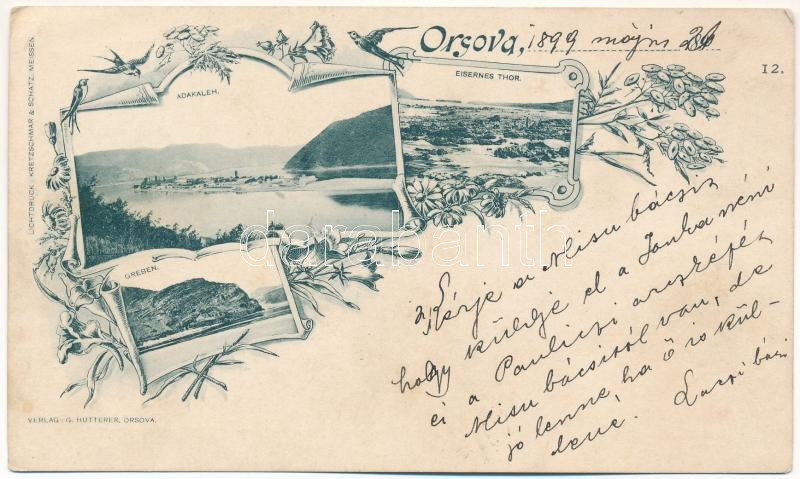 Orsova, 1899 május 26
12.
ADAKALEH.
EISERNES THOR.
GREBEN.
LICHTDRUCK: KRETZSCHMAR & SCHATZ, MEISSEN.
VERLAG: G. HUTTERER, ORSOVA.
darabanth
Kérje a Misu bácsit
hogy küldje el a Jonka néni
és a Pauliczi arczképét
Misu bácsitól van, de
jó lenne, ha ő is kül-
dene. Laczi bácsi